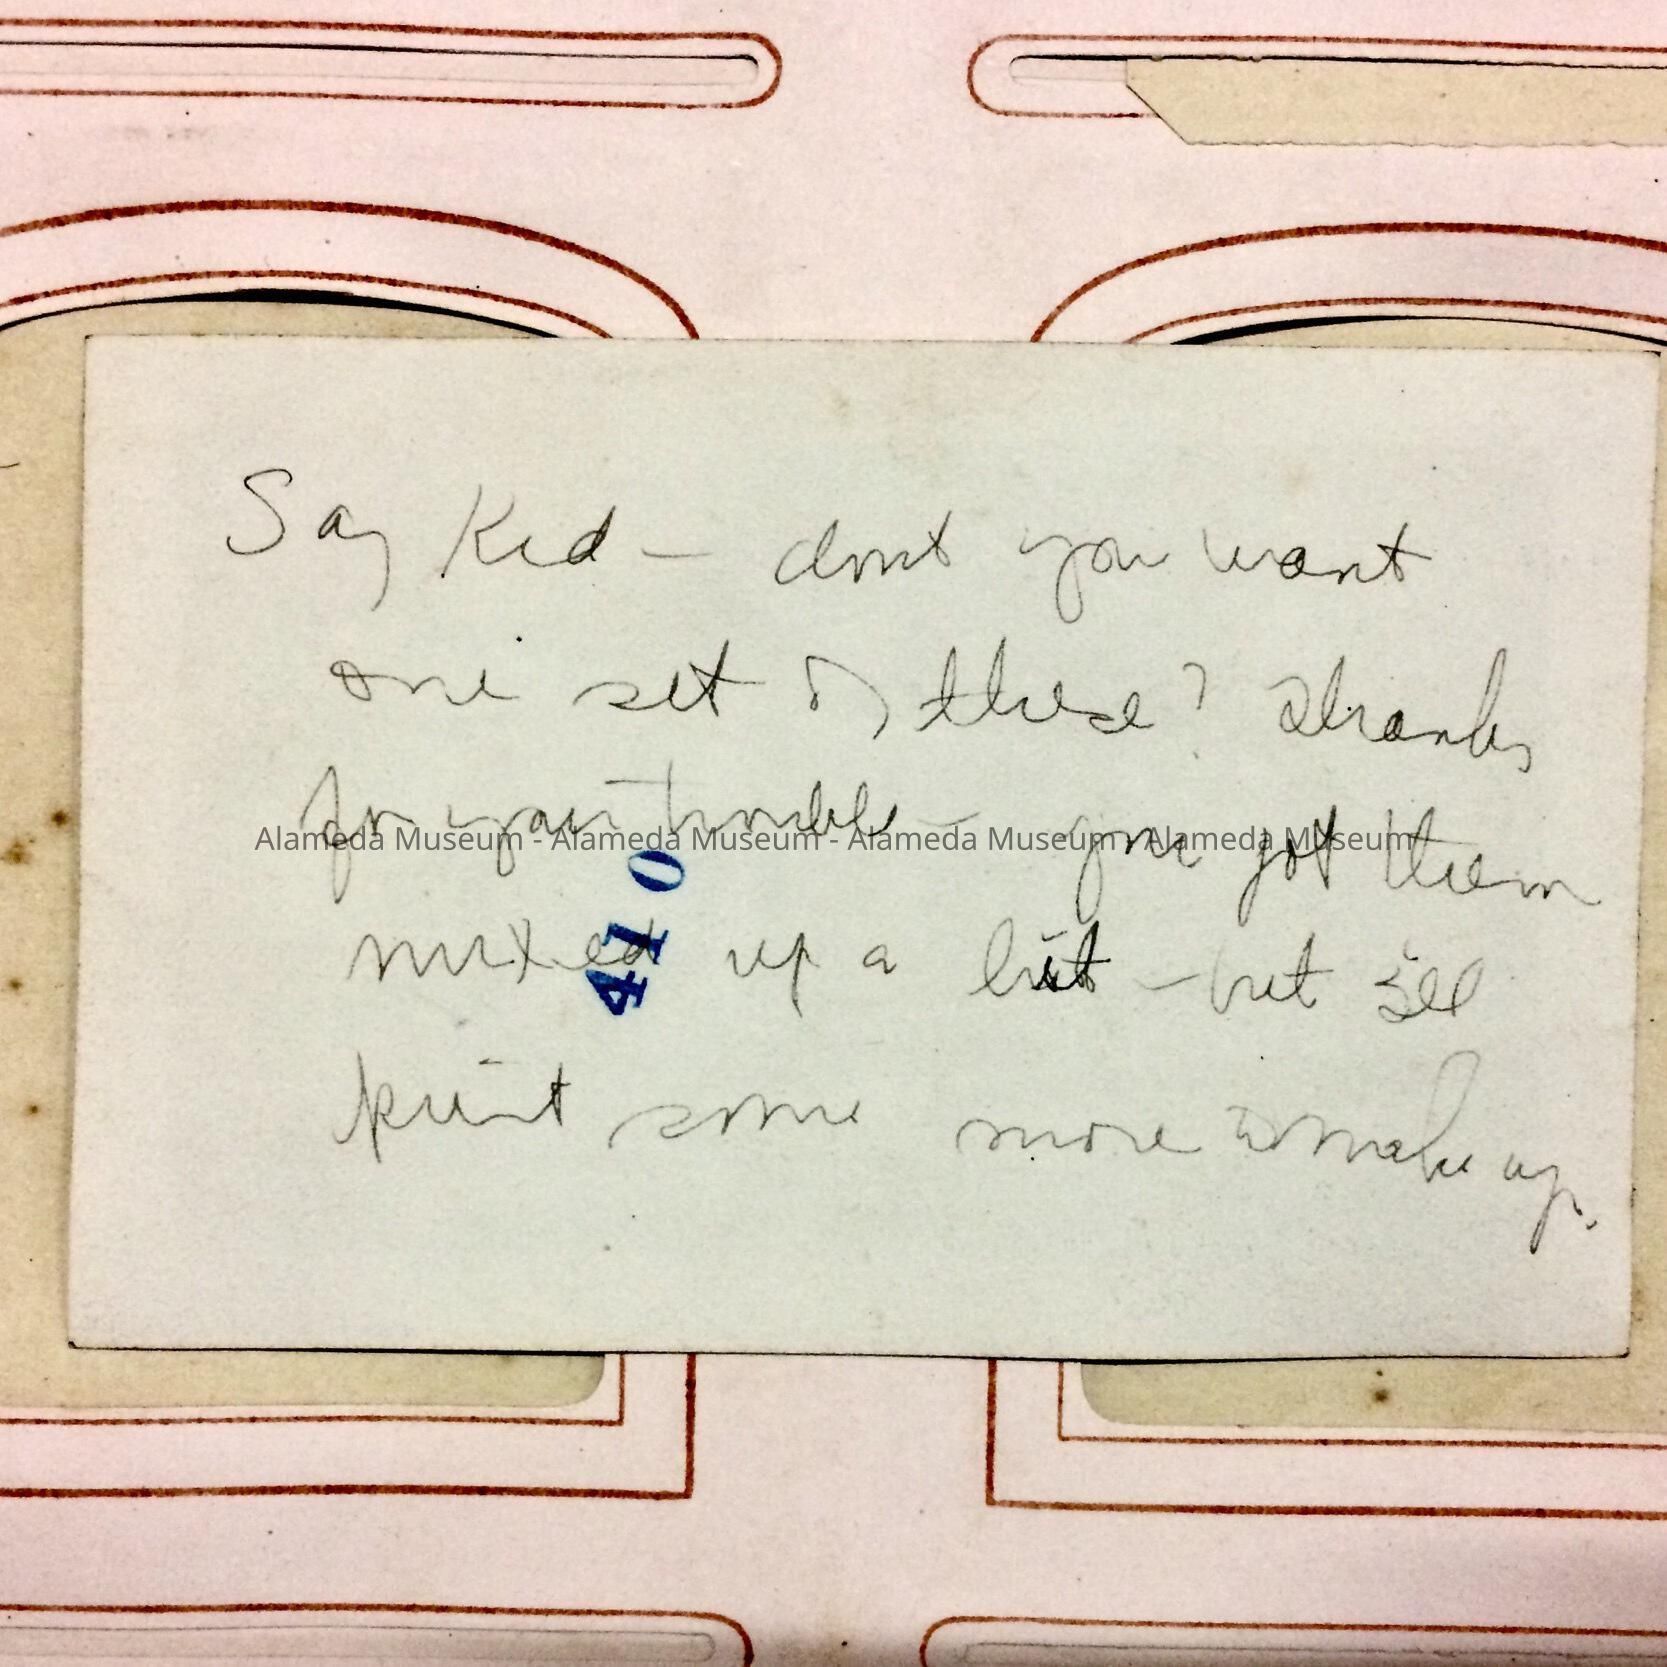 Say Kid — dont you want
one set of these? Thanks
for your trouble — you got them
Alameda Museum - Alameda Museum - Alameda Museum - Alameda Museum
410
mixed up a bit — but I'll
print some more to make up.